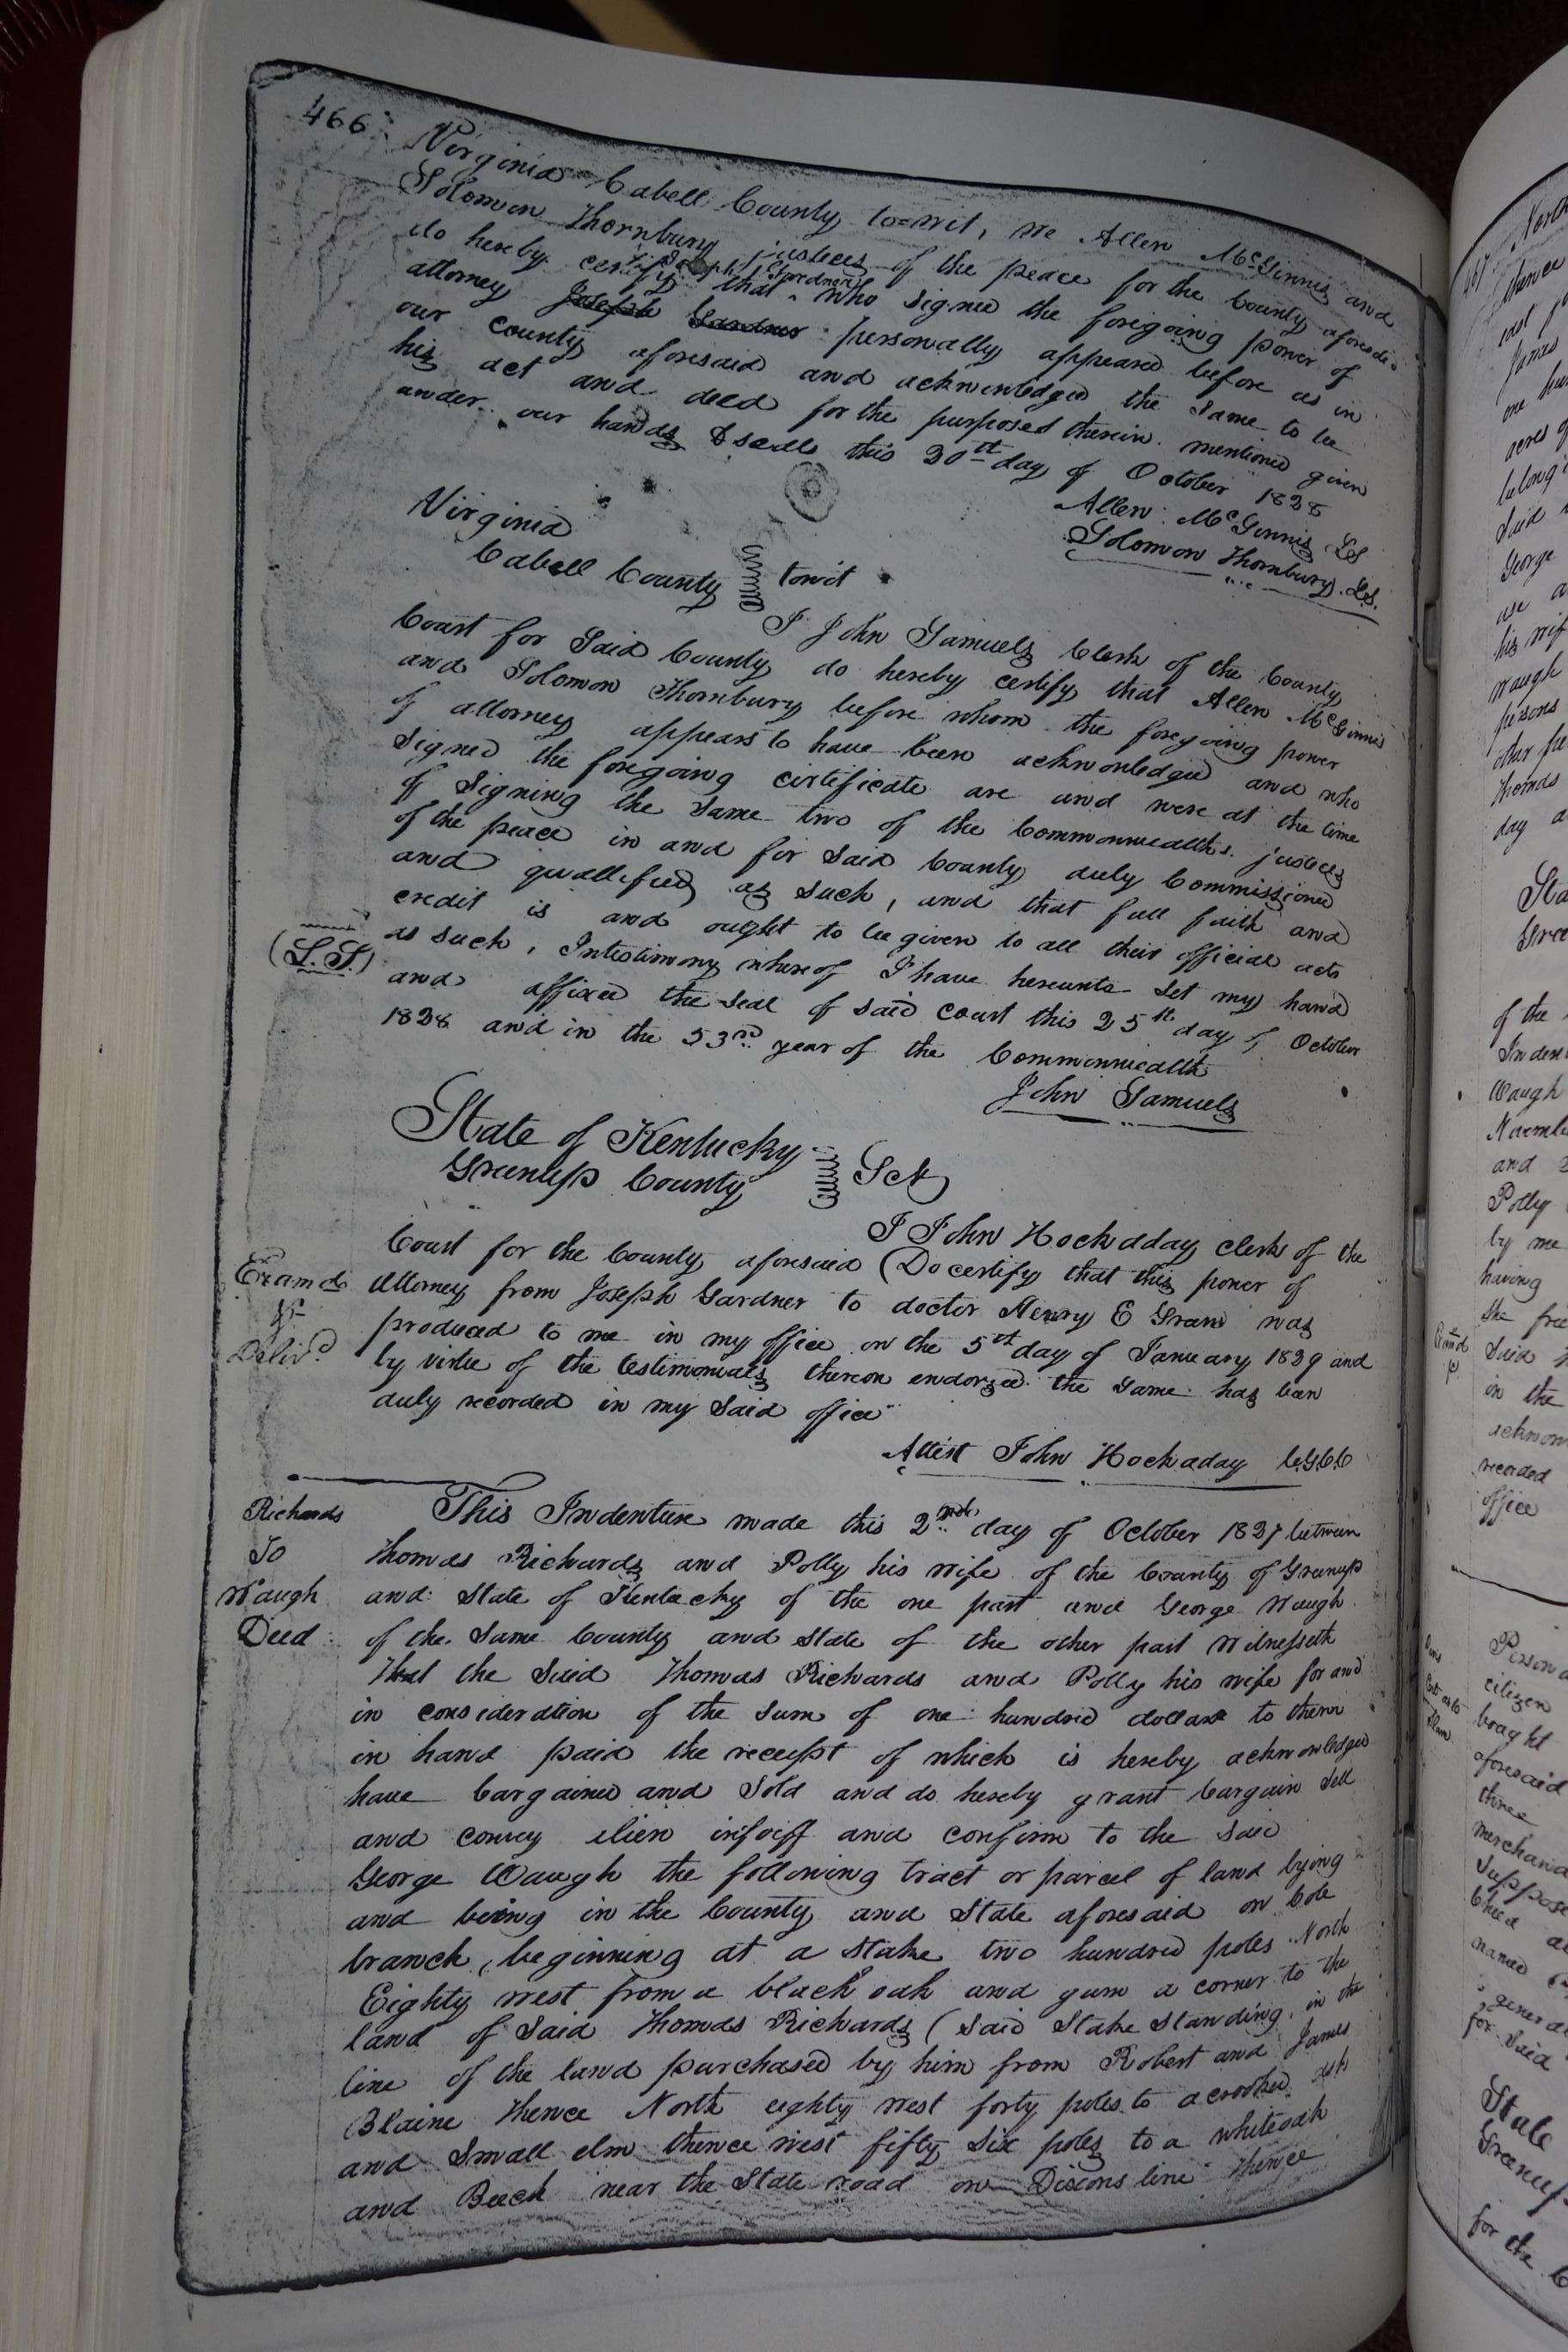 466
Virginia Cabell County to=wit, we Allen McGinnis and
Solomon Thornbury justices of the peace for the County aforesd.
Joseph Gardner
do hereby certify that ^ who signed the foregoing power of
attorney Joseph Gardner personally appeared before us in
our county aforesaid and acknowledged the same to be
his act and deed for the purposed therein mentioned given
under our hands & seals this 20th day of October 1838
Allen McGinnis LS
Solomon Thornbury L.S.
Virginia
Cabell County towit
I John Samuels Clerk of the County
Court for Said County do hereby certify that Allen McGinnis
and Solomon Thornbury before whom the foregoing power
of attorney appears to have been acknowledged and who
Signed the foregoing certificate are and were at the time
of Signing the Same two of the Commonwealths justices
of the peace in and for said County duly Commissioned
and quallifued as such, and that full faith and
credit is and ought to be given to all their official acts
(L.S.)
as such, Intestimony whereof I have hereunto Set my hand
and affixed the Seal of said court this 25th day of October
1838 and in the 53rd year of the Commonwealth
John Samuels
State of Kentucky
Greenup County Sct
I John Hockaday clerk of the
Court for the County aforesaid Do certify that this power of
Examd
Attorney from Joseph Gardner to doctor Henry E Green was
&
produced to me in my office on the 5th day of January 1839 and
Delivd
by virtue of the testimonials thereon endorsed the Same has been
duly recorded in my Said office
Attest John Hockaday C.G.C.C
Richards
To
Waugh
Deed
This Indenture made this 2nd day of October 1837 between
Thomas Richards and Polly his wife of the County of Greenup
and State of Kentucky of the one part and George Waugh
of the Same County and State of the other part Witnesseth
That the Said Thomas Richards and Polly his wife for and
in consideration of the Sum of one hundred dollars to them
in hand paid the receipt of which is hereby acknowledged
have bargained and Sold and do hereby grant bargain Sell
and convey alien infoiff and confirm to the Said
George Waugh the following tract or parcel of land lying
and being in the County and State aforesaid on Cole
branch, beginning at a Stake two hundred poles North
Eighty west from a black oak and gum a corner to the
land of Said Thomas Richards (Said Stake Standing in the
line of the land purchased by him from Robert and James
Blaine Thence North eighty west forty poles to a crooked
and Small elm thence west fifty Six poles to a whiteoak
and Beech near the State road on Dixons line Thence